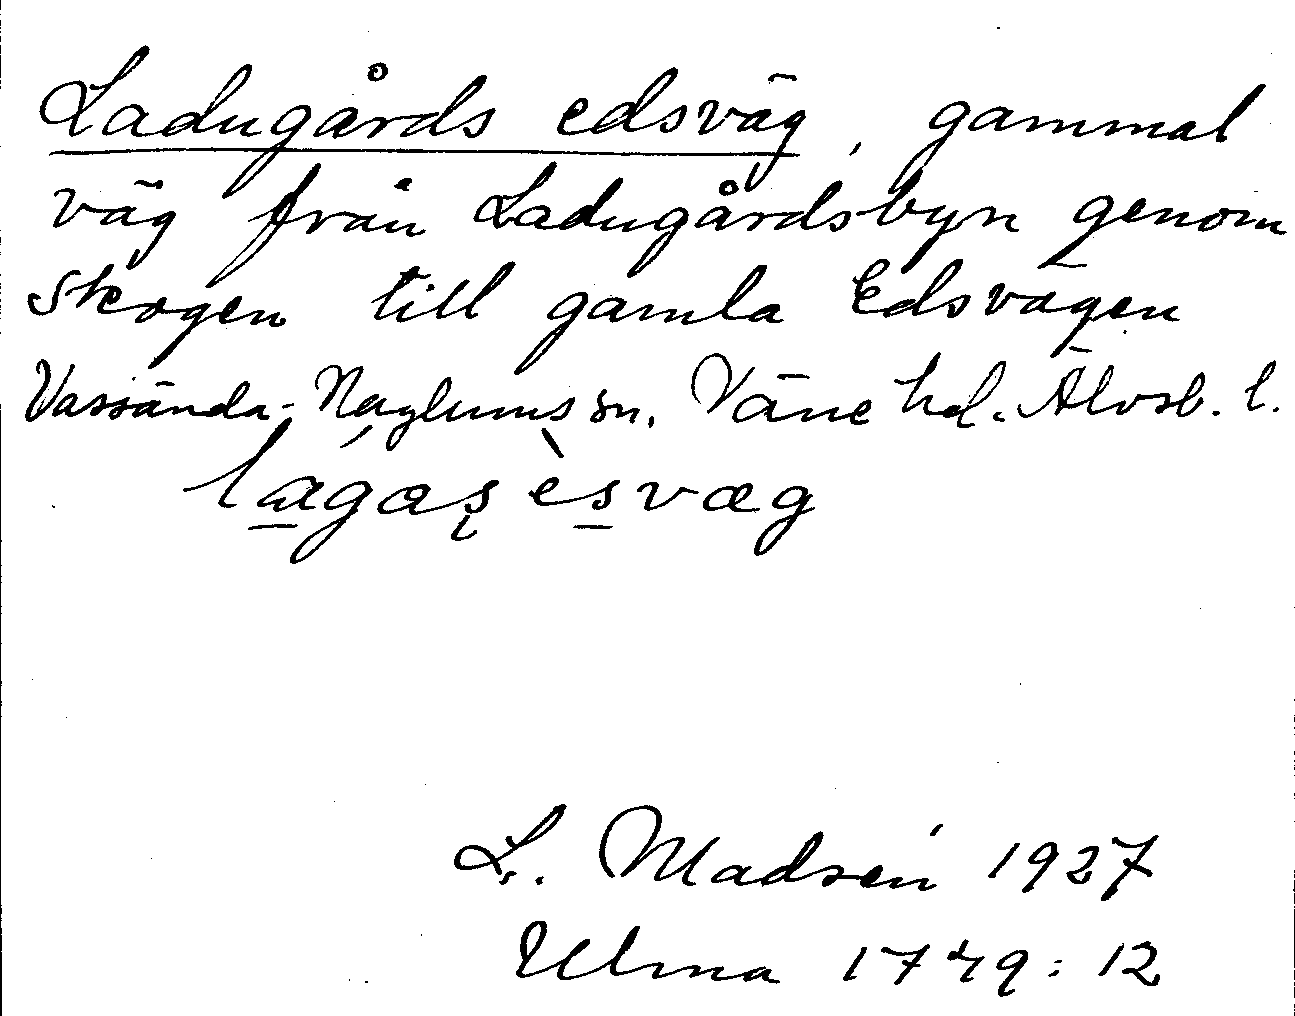 Ladugårds edsväg, gammal
väg från Ladugårdsbyn genom
skogen till gamla Edsvägen
Vassända-Naglums sn, Väne hd. Älvsb. l.
lágas̨ èsvæg
L. Madsén 1927
Ulma 1749:12